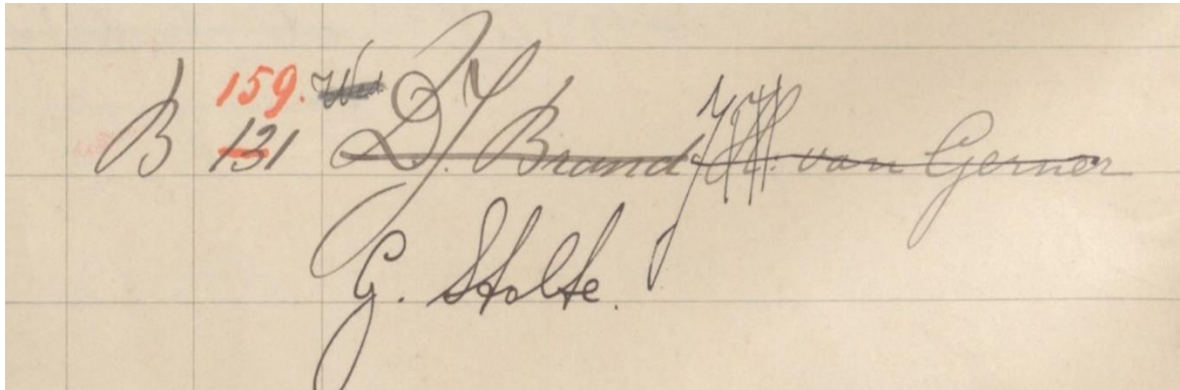 159. Wed
B 131 D. J. Brand J. H. van Gerner
G. Stolte.